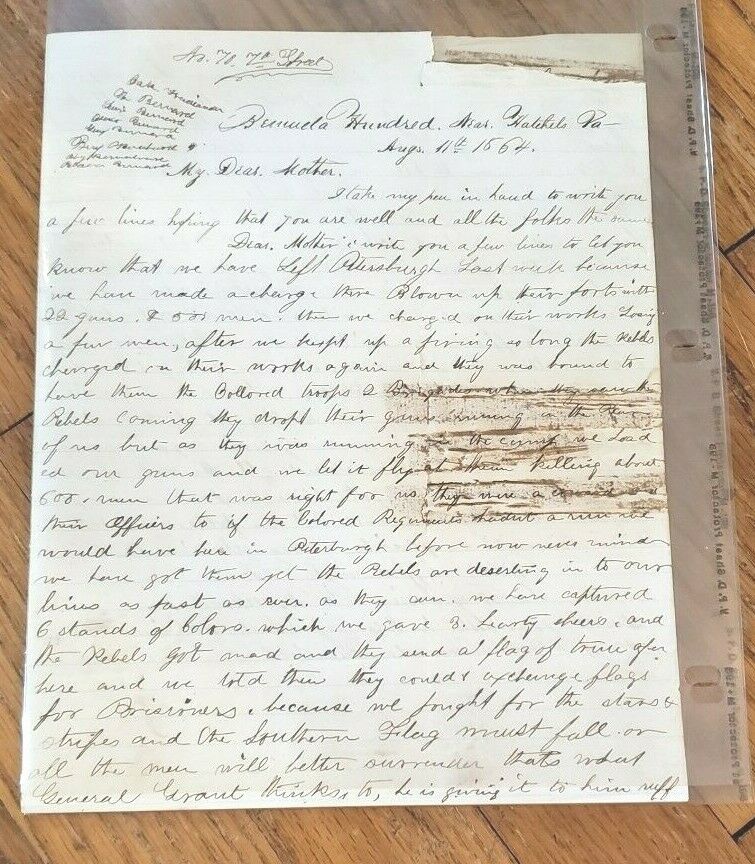 No. 70. 7th Street
Bernard
Bernard
Bermuda Hundred. Near. Hatchels Va
Augs. 11th 1864.
My. Dear. Mother.
I take my pen in hand to write you
a few lines hoping that you are well and all the folks the same
Dear. Mother i write you a few lines to let you
know that we have Left Petersburgh Last week because
we have made a charge there Blown up their forts with
22 guns. & 500 men. then we charged on their works Losing
a few men, after we keept up a firing so long the Rebels
chevrged on their works again and they was bound to
have them the Collored troops 2 Brigades when they saw the
Rebels Coming they dropt their guns running in the
of us but as they was running the we Load
ed our guns and we let it fly at them killing about
600. men that was right for us they were a
their Officers to if the Colored Regiments hadent a run we
would have bene in Peterburgh before now never mind
we have got them yet the Rebels are deserting in to our
lines as fast as ever. as they can. we have captured
6 stands of Colors. which we gave 3. hearty cheers. and
the Rebels got mad and they send a flag of truce over
here and we told them they couldt exchange flags
for Prisoners. because we fought for the stars &
stripes and the Southern Flag must fall. or
all the men will better surrender thats what
General Grant thinks. to, he is giving it to him ruff
W.P.D Sheet Protector M-199